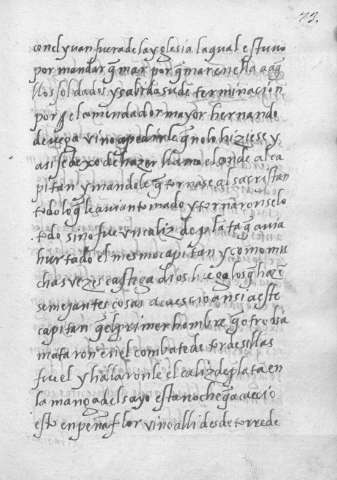 79.
con el yvan fuera de la yglesia la qual estuuo
por mandar qmar por qmar en ella aqe
llos soldados y sabida su determinaçion
por el comendador mayor hernando
de vega vino a pedirle q no lo hiziese y
asi se dexo de hazer llamo el conde al ca
pitan y mandole q tornase al sacristan
todo lo q le auian tomado y tornaronselo
todo sino fue vn caliz de plata q auia
hurtado el mesmo capitan y como mu
chas vezes castiga dios luego los q hazē
semejantes cosas acaesçio ansi a este
capitan q el primer hombre q otro dia
mataron en el combate de tordesillas
fue el y hallaronle el caliz de plata en
la manga del sayo esta noche q acaeçio
esto en peñaflor vino alli desde torre de